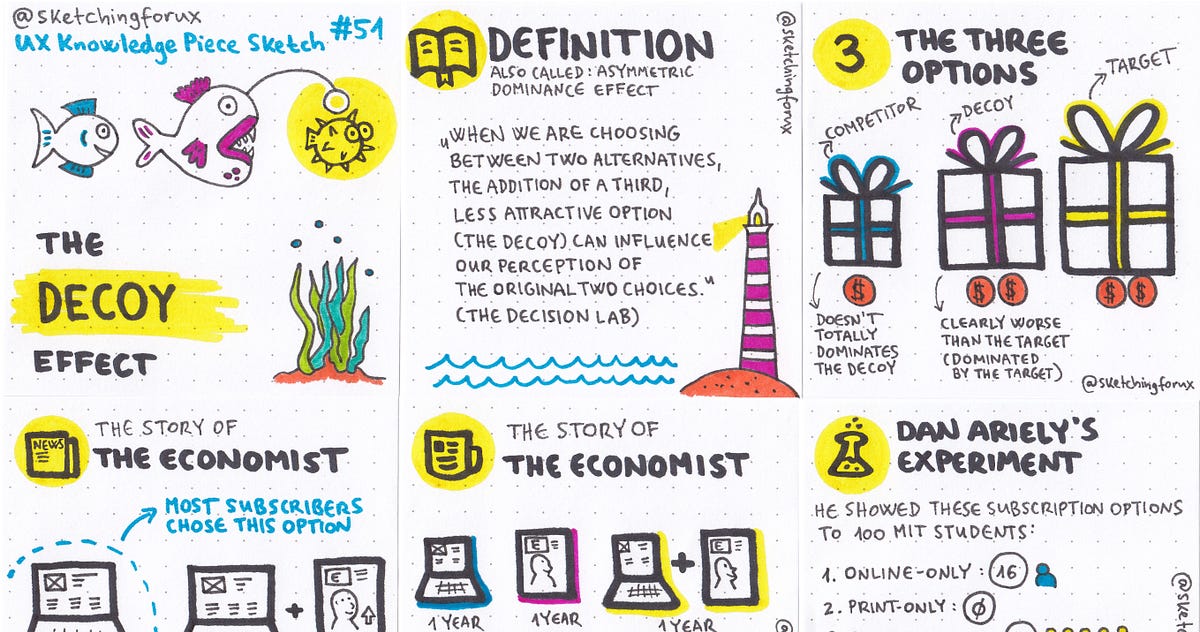 @sketchingforux
UX Knowledge Piece Sketch #51
THE
DECOY
EFFECT
DEFINITION
ALSO CALLED: ASYMMETRIC
DOMINANCE EFFECT
„WHEN WE ARE CHOOSING
BETWEEN TWO ALTERNATIVES,
THE ADDITION OF A THIRD,
LESS ATTRACTIVE OPTION
(THE DECOY) CAN INFLUENCE
OUR PERCEPTION OF
THE ORIGINAL TWO CHOICES."
(THE DECISION LAB)
@sketchingforux
3
THE THREE
OPTIONS
COMPETITOR
DECOY
TARGET
$
$ $
$ $
DOESN'T
TOTALLY
DOMINATES
THE DECOY
CLEARLY WORSE
THAN THE TARGET
(DOMINATED
BY THE TARGET)
@sketchingforux
NEWS
THE STORY OF
THE ECONOMIST
MOST SUBSCRIBERS
CHOSE THIS OPTION
+
E
THE STORY OF
THE ECONOMIST
E
+
E
1 YEAR
1 YEAR
1 YEAR
DAN ARIELY'S
EXPERIMENT
HE SHOWED THESE SUBSCRIPTION OPTIONS
TO 100 MIT STUDENTS:
1. ONLINE-ONLY: 16
2. PRINT-ONLY: Ø